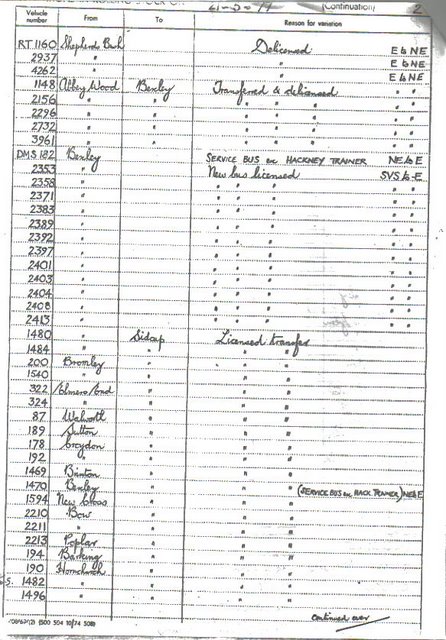 (Continuation) 2
Vehicle number From To Reason for variation
RT 1160 Shepherds Bush Delicensed E to NE
2937 " " E to NE
4262 " " E to NE
1148 Abbey Wood Bexley Transferred & delicensed " "
2156 " " " " " "
2296 " " " " " "
2732 " " " " " "
3961 " " " " " "
DMS 132 Bexley SERVICE BUS ex HACKNEY TRAINER NE to E
2353 " New bus licensed SVS to E
2358 " " " " " "
2371 " " " " " "
2383 " " " " " "
2389 " " " " " "
2392 " " " " " "
2397 " " " " " "
2401 " " " " " "
2403 " " " " " "
2404 " " " " " "
2408 " " " " " "
2413 " " " " " "
1480 " Sidcup Licensed transfer
1484 " " " "
200 Bromley " " "
1540 " " " "
322 Palmers Green " " "
324 " " " "
87 Walworth " " "
189 Sutton " " "
178 Croydon " " "
192 " " " "
1469 Brixton " " "
1470 Bexley " " " (SERVICE BUS ex. HACK. TRAINER) NE to E
1594 New Cross " " "
2210 Bow " " "
2211 " " " "
2213 Poplar " " "
194 Barking " " "
190 Hornchurch " " "
1482 " " " "
1496 " " " "
continued over